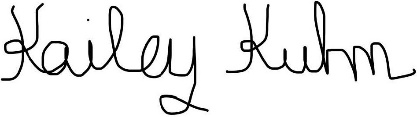 Kailey Kuhm